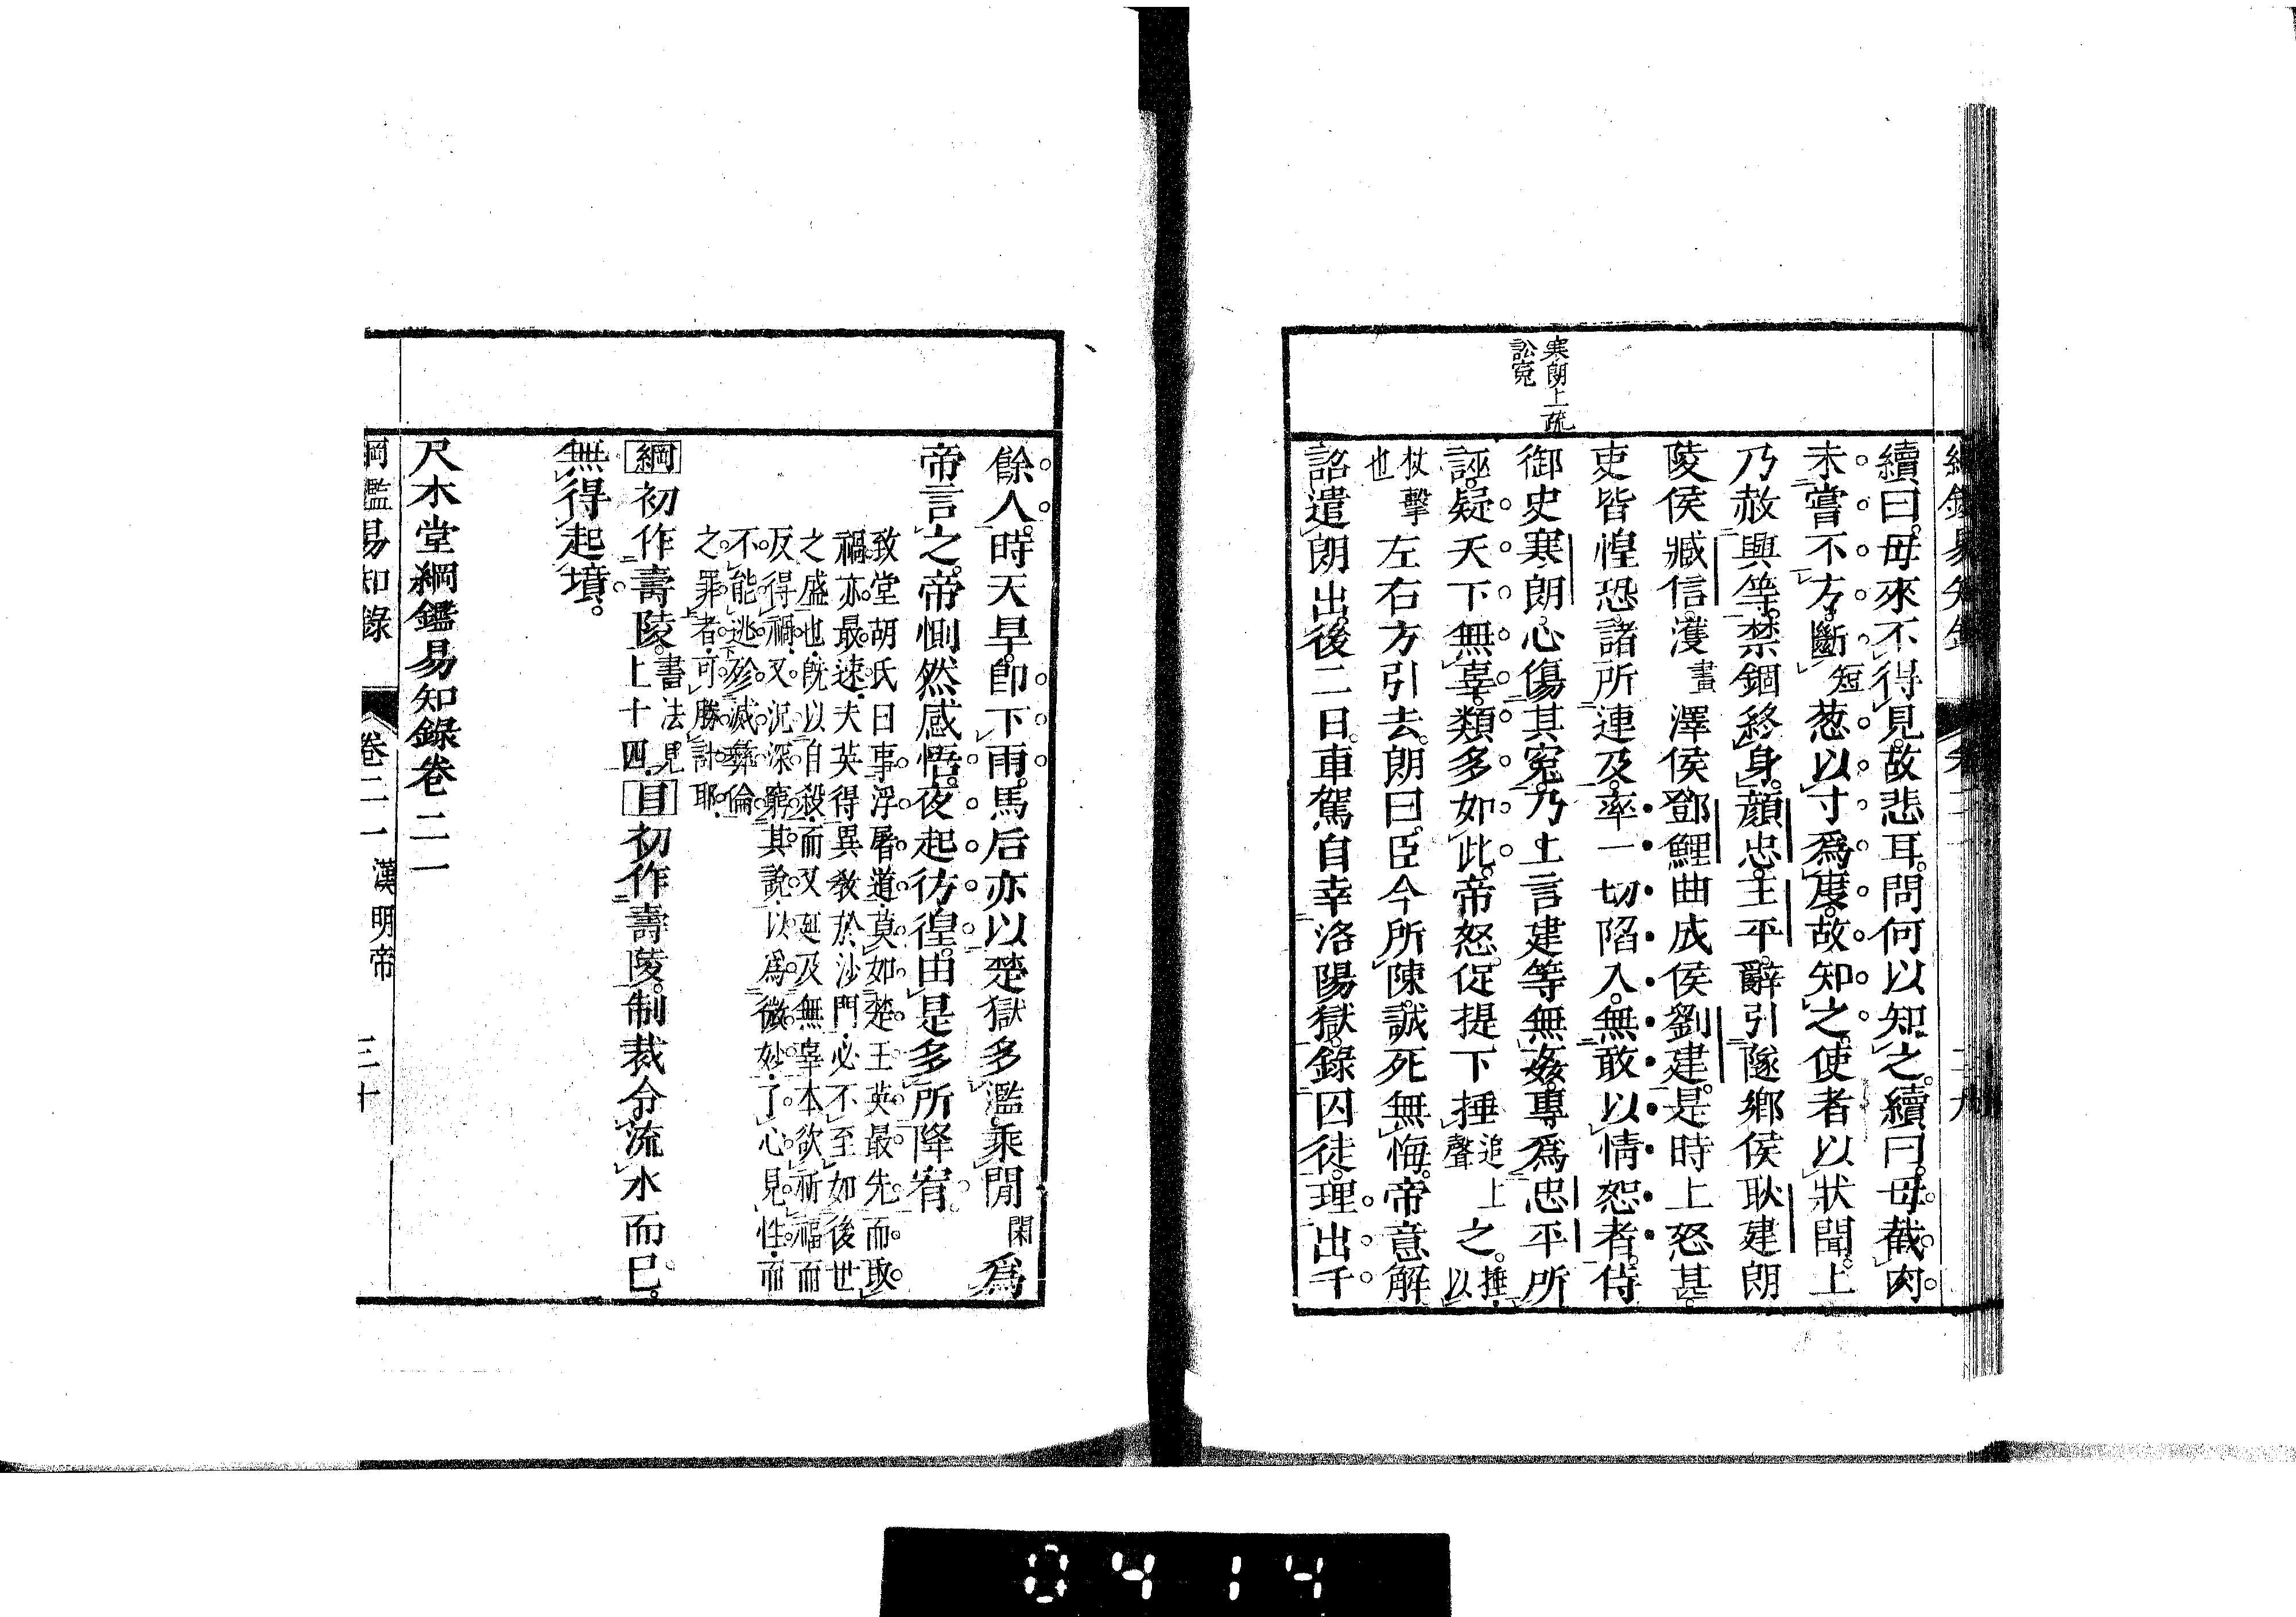 寒朗上疏
訟寃
續曰。母來不得見。故悲耳。問何以知之。續曰。母截肉
未嘗不方。斷短葱以寸爲度。故知之。使者以狀聞。上
乃赦興等。禁錮終身。顏忠王平。辭引隧鄉侯耿建朗
陵侯臧信。濩畫澤侯鄧鯉曲成侯劉建。是時上怒甚。
吏皆惶恐。諸所連及。率一切陷入。無敢以情恕者。侍
御史寒朗。心傷其寃。乃上言建等無姦。專爲忠平所
誣。疑天下無辜。類多如此。帝怒。促提下捶追上聲之。捶。以
杖擊也左右方引去。朗曰。臣今所陳。誠死無悔。帝意解
詔遣朗出。後二日。車駕自幸洛陽獄。錄囚徒。理出千
餘人。時天旱。卽下雨。馬后亦以楚獄多濫。乘閒閑爲
帝言之。帝惻然感悟。夜起彷徨。由是多所降宥。
致堂胡氏曰事浮屠道。莫如楚王英最先。而取
禍亦最速。夫英得異敎於沙門。必不至如後世
之盛也。旣以自殺。而又延及無辜本欲祈福而
反得禍。又況深窮其說。以爲微妙。了心見性。而
不能逃殄滅彝倫
之罪者。可勝計耶。
綱初作壽陵。書法見上十四。目初作壽陵。制裁令流水而已。
無得起墳。
尺木堂綱鑑易知錄卷二一
綱鑑易知錄 卷二一 漢明帝 三十